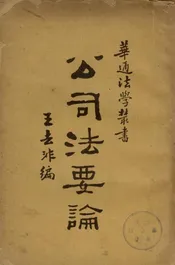 華通法學叢書
公司法要論
王去非編